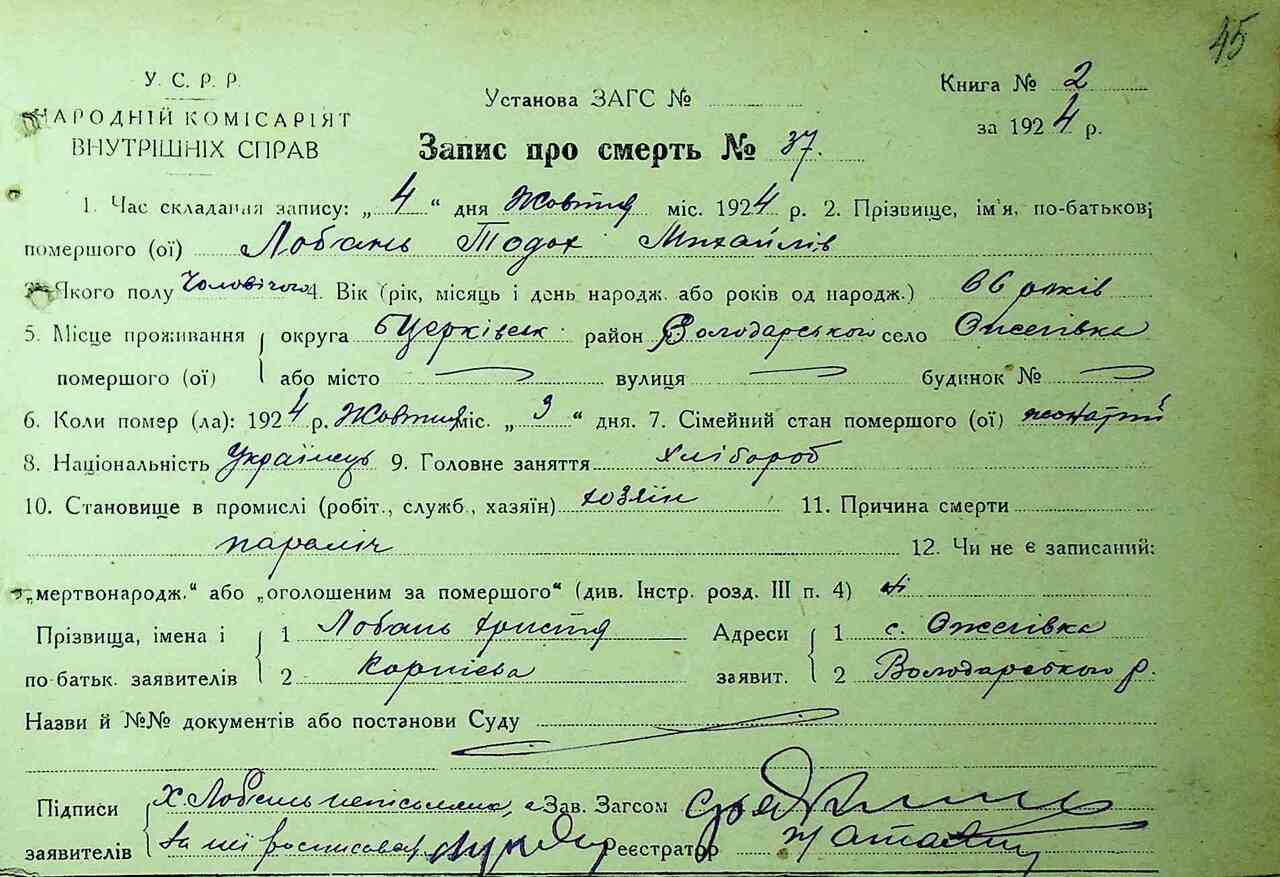 45
У. С. Р. Р.
НАРОДНІЙ КОМІСАРІЯТ
ВНУТРІШНІХ СПРАВ
Установа ЗАГС №
Книга № 2
за 1924 р.
Запис про смерть № 37.
1. Час складання запису: „ 4 “ дня Жовтня міс. 1924 р. 2. Прізвище, ім'я, по-батькові
помершого (ої) Лобань Тодох Михайлів
3. Якого полу Чоловічого 4. Вік (рік, місяць і день народж. або років од народж.) 66 років
5. Місце проживання округа БЦерківськ район Володарського село Ожегівка
помершого (ої) або місто вулиця будинок №
6. Коли помер (ла): 1924 р. Жовтня міс. „ 3 “ дня. 7. Сімейний стан помершого (ої) жонатий
8. Національність Українець 9. Головне заняття Хлібороб
10. Становище в промислі (робіт., служб., хазяїн) хозяїн 11. Причина смерти
параліч 12. Чи не є записаний:
„мертвонародж.“ або „оголошеним за помершого“ (див. Інстр. розд. III п. 4) ні
Прізвища, імена і 1 Лобань Христя Адреси 1 с. Ожегівка
по батьк. заявителів 2 Корнієва заявит. 2 Володарського р.
Назви й №№ документів або постанови Суду
Підписи Х. Лобань неписьмена, а Зав. Загсом
заявителів За неї росписовал Реєстратор